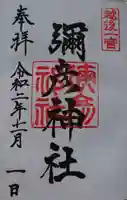 越後一宮
奉拝
彌彦神社
令和二年十二月一日